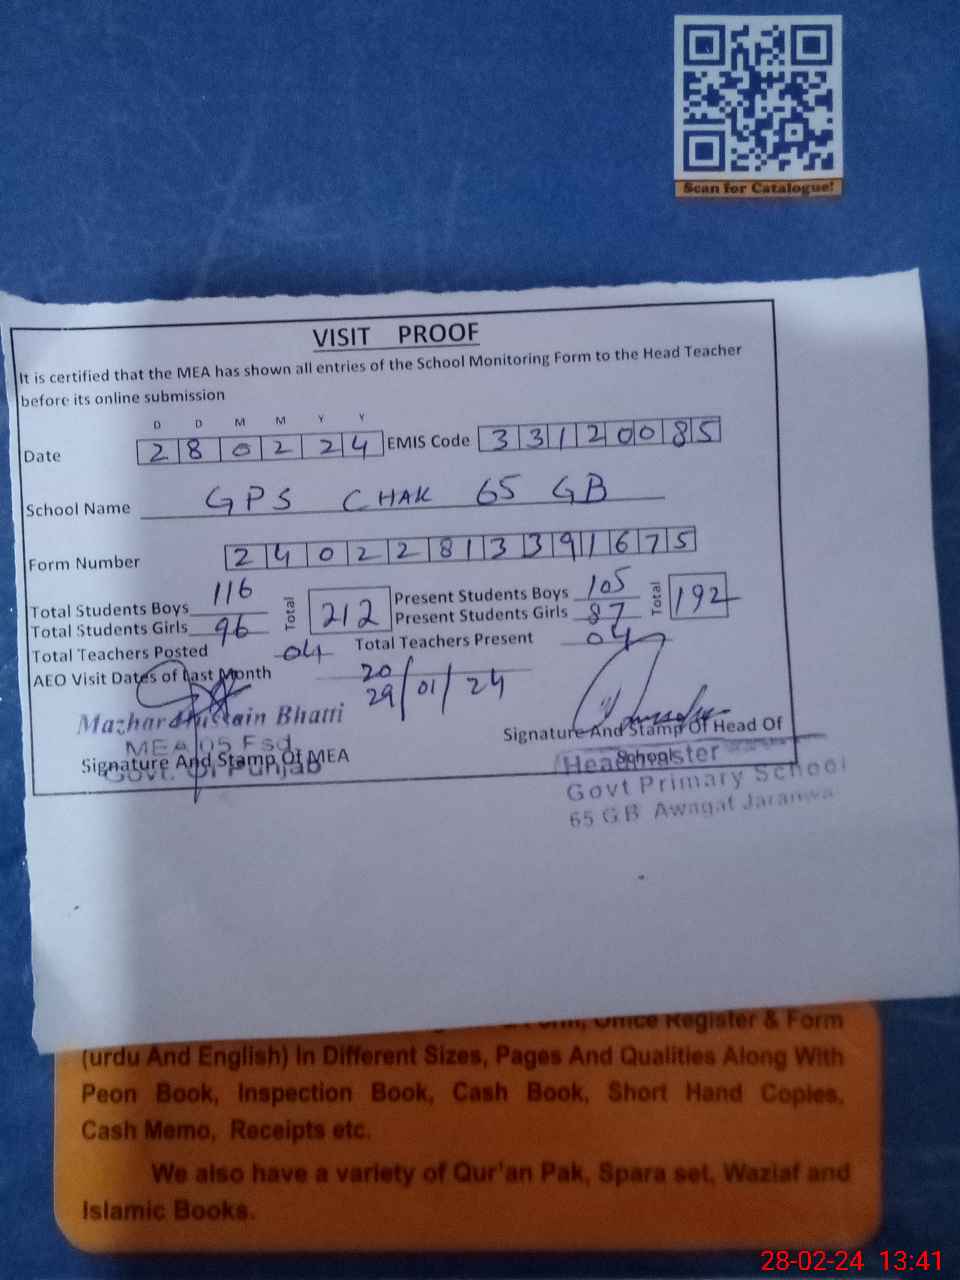 Scan for Catalogue!
VISIT PROOF
It is certified that the MEA has shown all entries of the School Monitoring Form to the Head Teacher
before its online submission
D D M M Y Y
Date 28 02 24 EMIS Code 33120085
School Name GPS CHAK 65 GB
Form Number 24022813391675
Total Students Boys 116 Total 212 Present Students Boys 105 Total 192
Total Students Girls 96 Present Students Girls 87
Total Teachers Posted 04 Total Teachers Present 04
AEO Visit Dates of Last Month 20
29/01/24
Mazhar Hussain Bhatti
MEA 05 Fsd
Signature And Stamp Of MEA
Govt. Of Punjab
Signature And Stamp Of Head Of
School
Headmaster
Govt Primary School
65 GB Awagat Jaranwa
Office Register & Form
(urdu And English) In Different Sizes, Pages And Qualities Along With
Peon Book, Inspection Book, Cash Book, Short Hand Copies,
Cash Memo, Receipts etc.
We also have a variety of Qur'an Pak, Spara set, Waziaf and
Islamic Books.
28-02-24 13:41